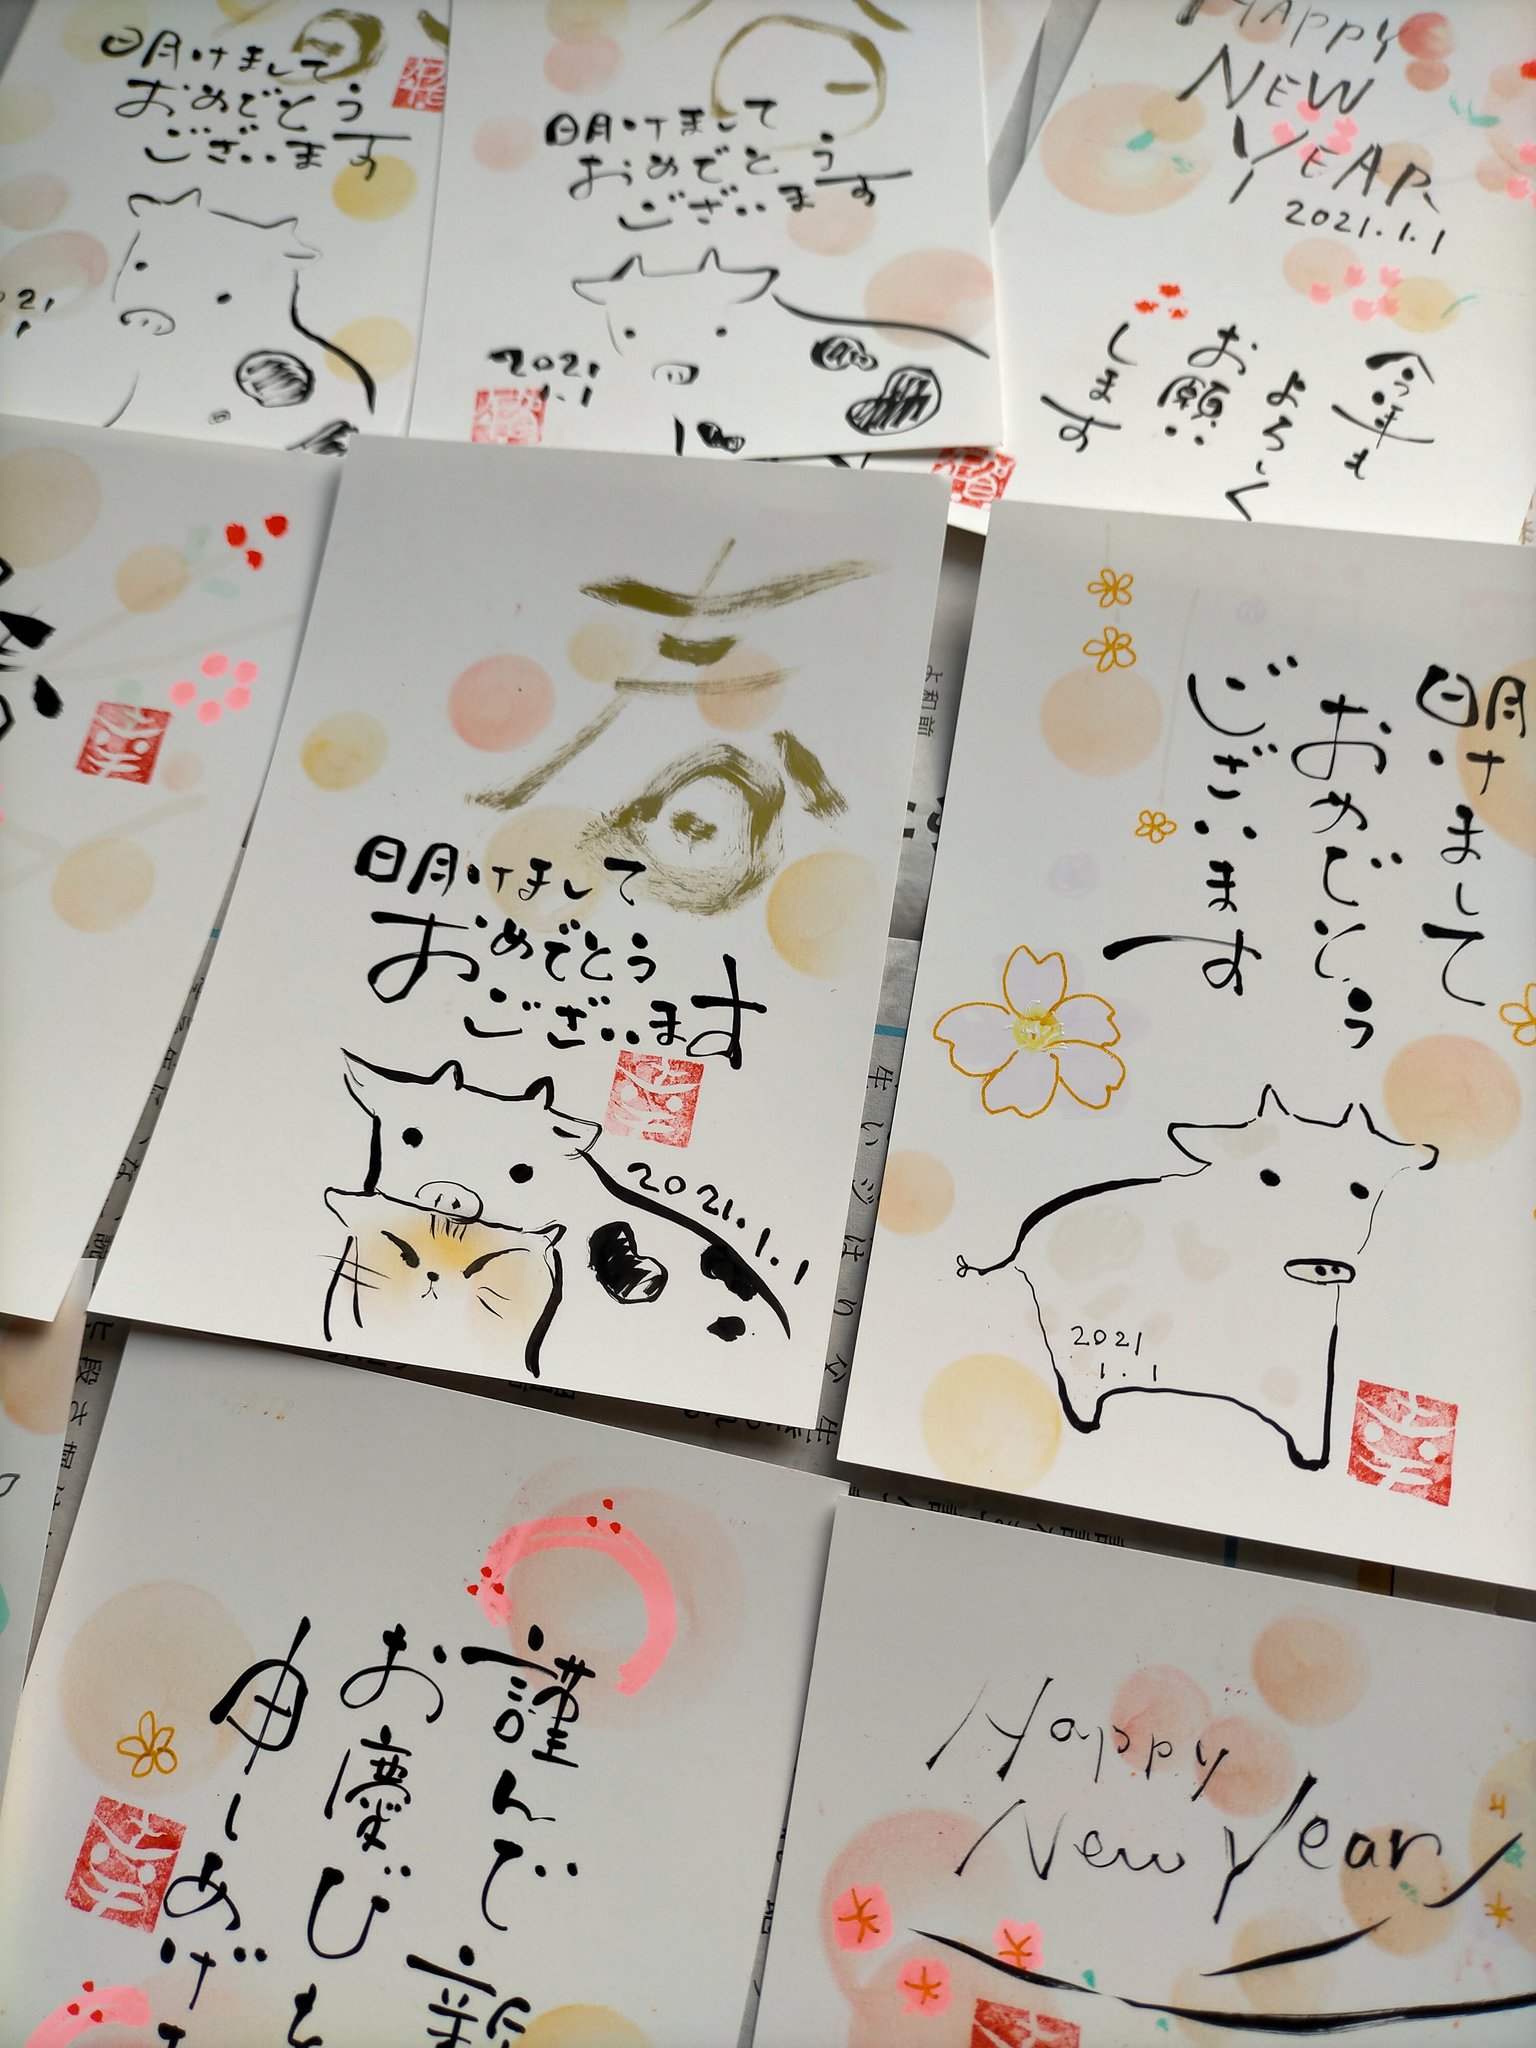 明けまして
おめでとう
ございます
明けまして
おめでとう
ございます
2021
1.1
HAPPY
NEW
YEAR
2021.1.1
今年も
よろしく
お願い
します
明けまして
おめでとう
ございます
2021.1.1
明けまして
おめでとう
ございます
2021
1.1
謹んで新
お慶びを
申しあげ
Happy
New Year